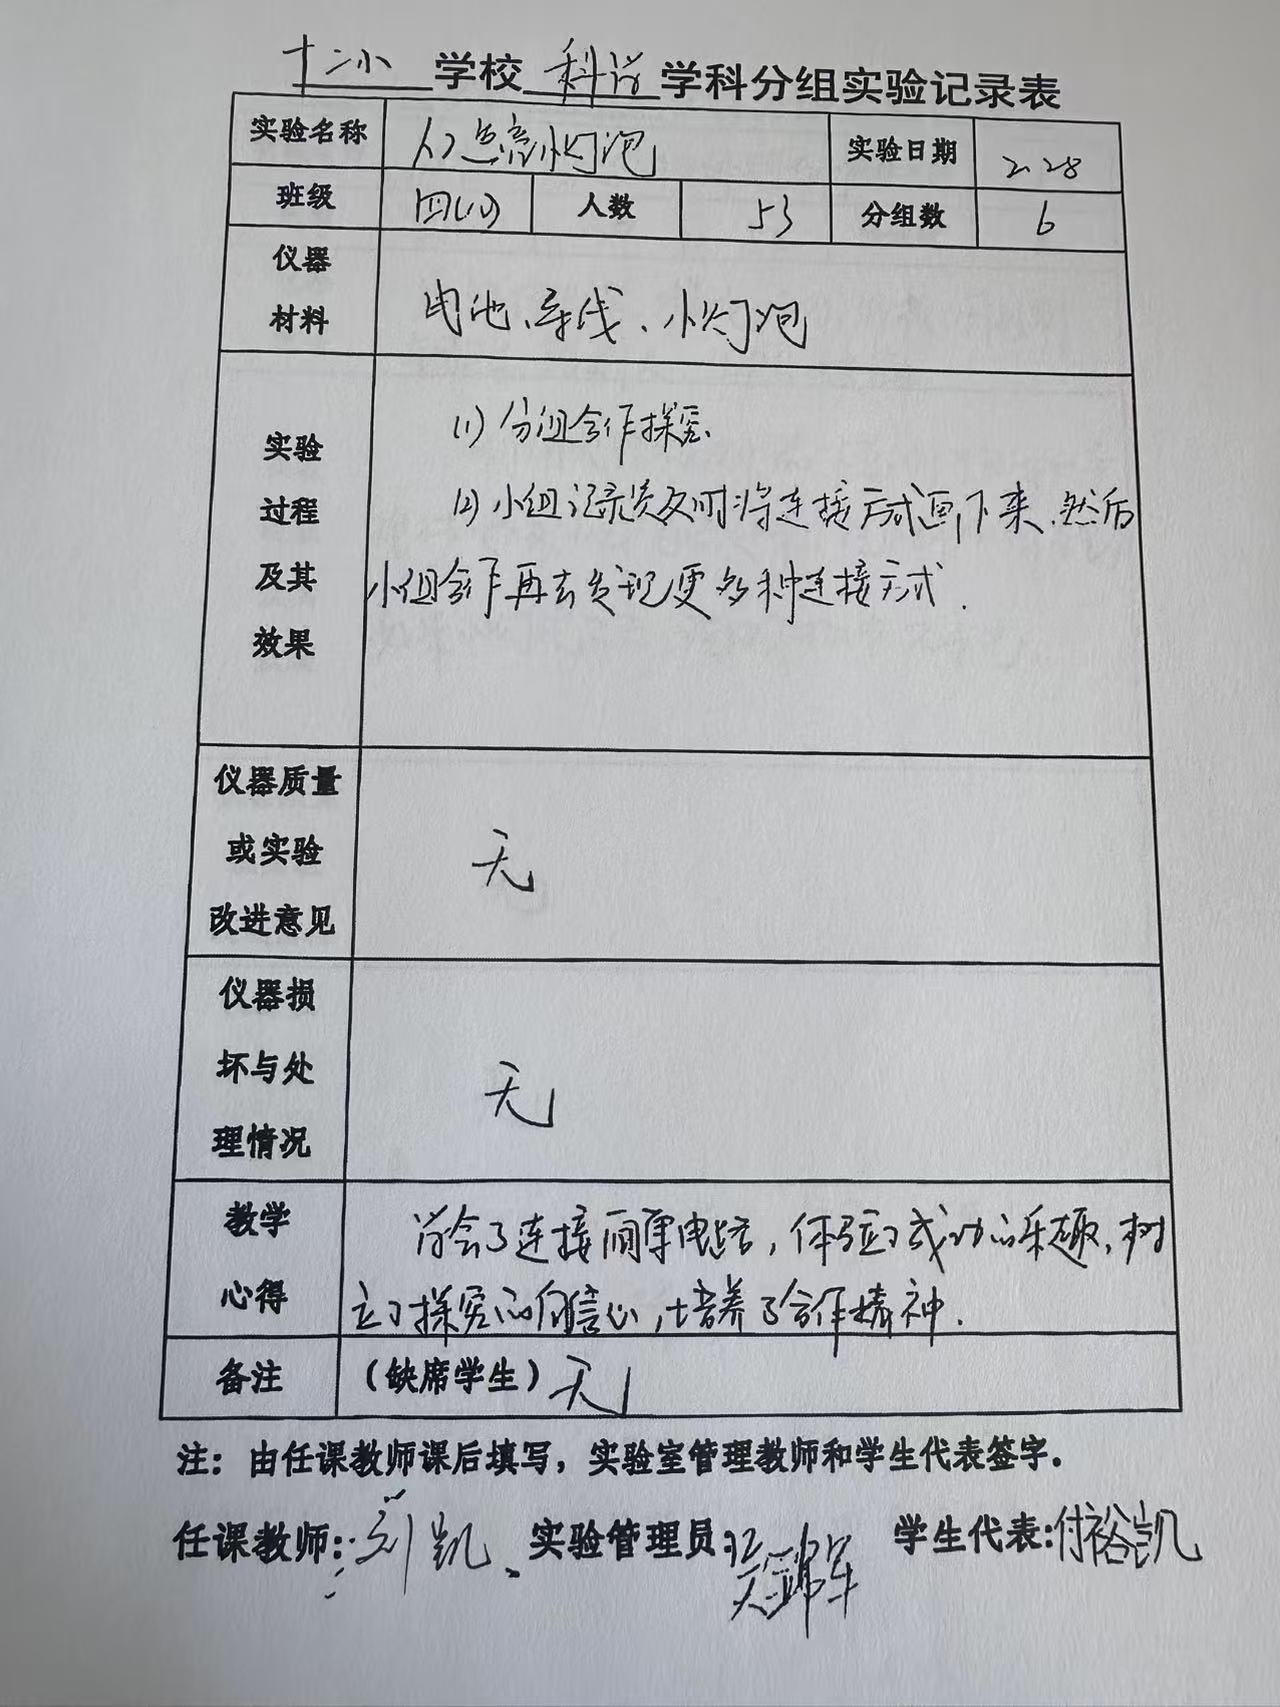 十二小 学校 科学 学科分组实验记录表
实验名称 点亮小灯泡 实验日期 2.28
班级 四(1) 人数 53 分组数 6
仪器
材料
电池、导线、小灯泡
实验
过程
及其
效果
(1) 分组合作探究.
(2) 小组记录员及时将连接方式画下来.然后
小组合作再去发现更多种连接方式.
仪器质量
或实验
改进意见
无
仪器损
坏与处
理情况
无
教学
心得
学会了连接简单电路,体验了成功的乐趣,树
立了探究的自信心,培养了合作精神.
备注 (缺席学生) 无
注:由任课教师课后填写,实验室管理教师和学生代表签字.
任课教师: 刘凯 实验管理员: 学生代表:付裕凯